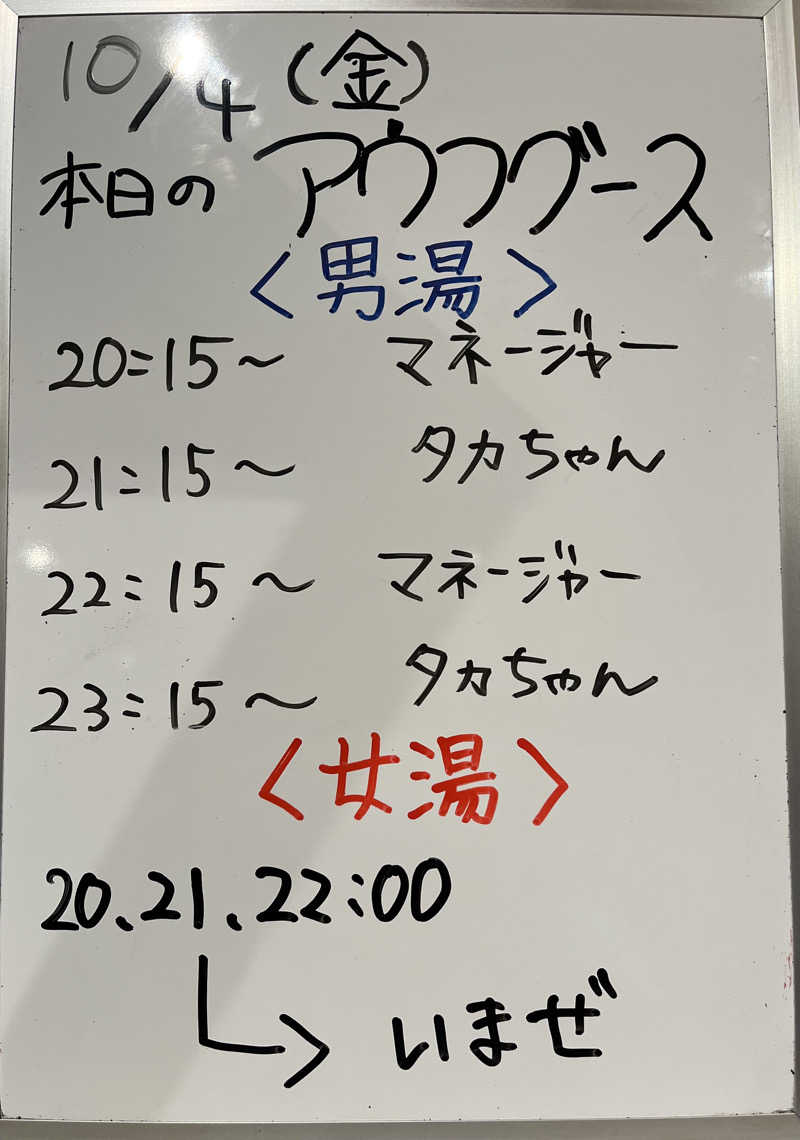 10/4(金)
本日の アウフグース
〈男湯〉
20:15〜 マネージャー
21:15〜 タカちゃん
22:15〜 マネージャー
23:15〜 タカちゃん
〈女湯〉
20、21、22:00
いまぜ